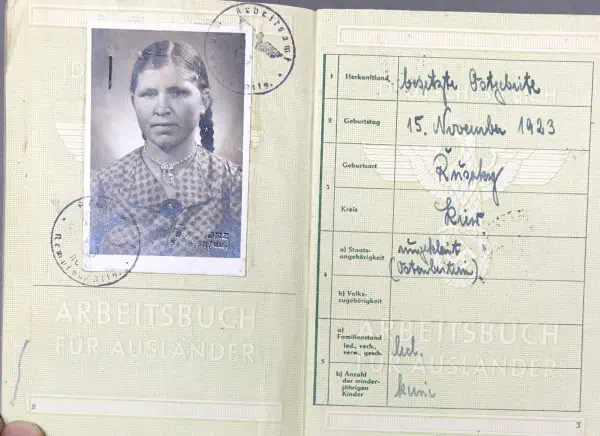 Arbeitsamt
Kempten/Allg.
ARBEITSBUCH
FÜR AUSLÄNDER
2
1 Herkunftsland besetzte Ostgebiete
2 Geburtstag 15. November 1923
3 Geburtsort
Kreis Kiew
4 a) Staats-
angehörigkeit ungeklärt
(Ostarbeiterin)
b) Volks-
zugehörigkeit
5 a)
Familienstand
led., verh.,
verw., gesch. led.
b) Anzahl
der minder-
jährigen
Kinder keine
ARBEITSBUCH
FÜR AUSLÄNDER
3